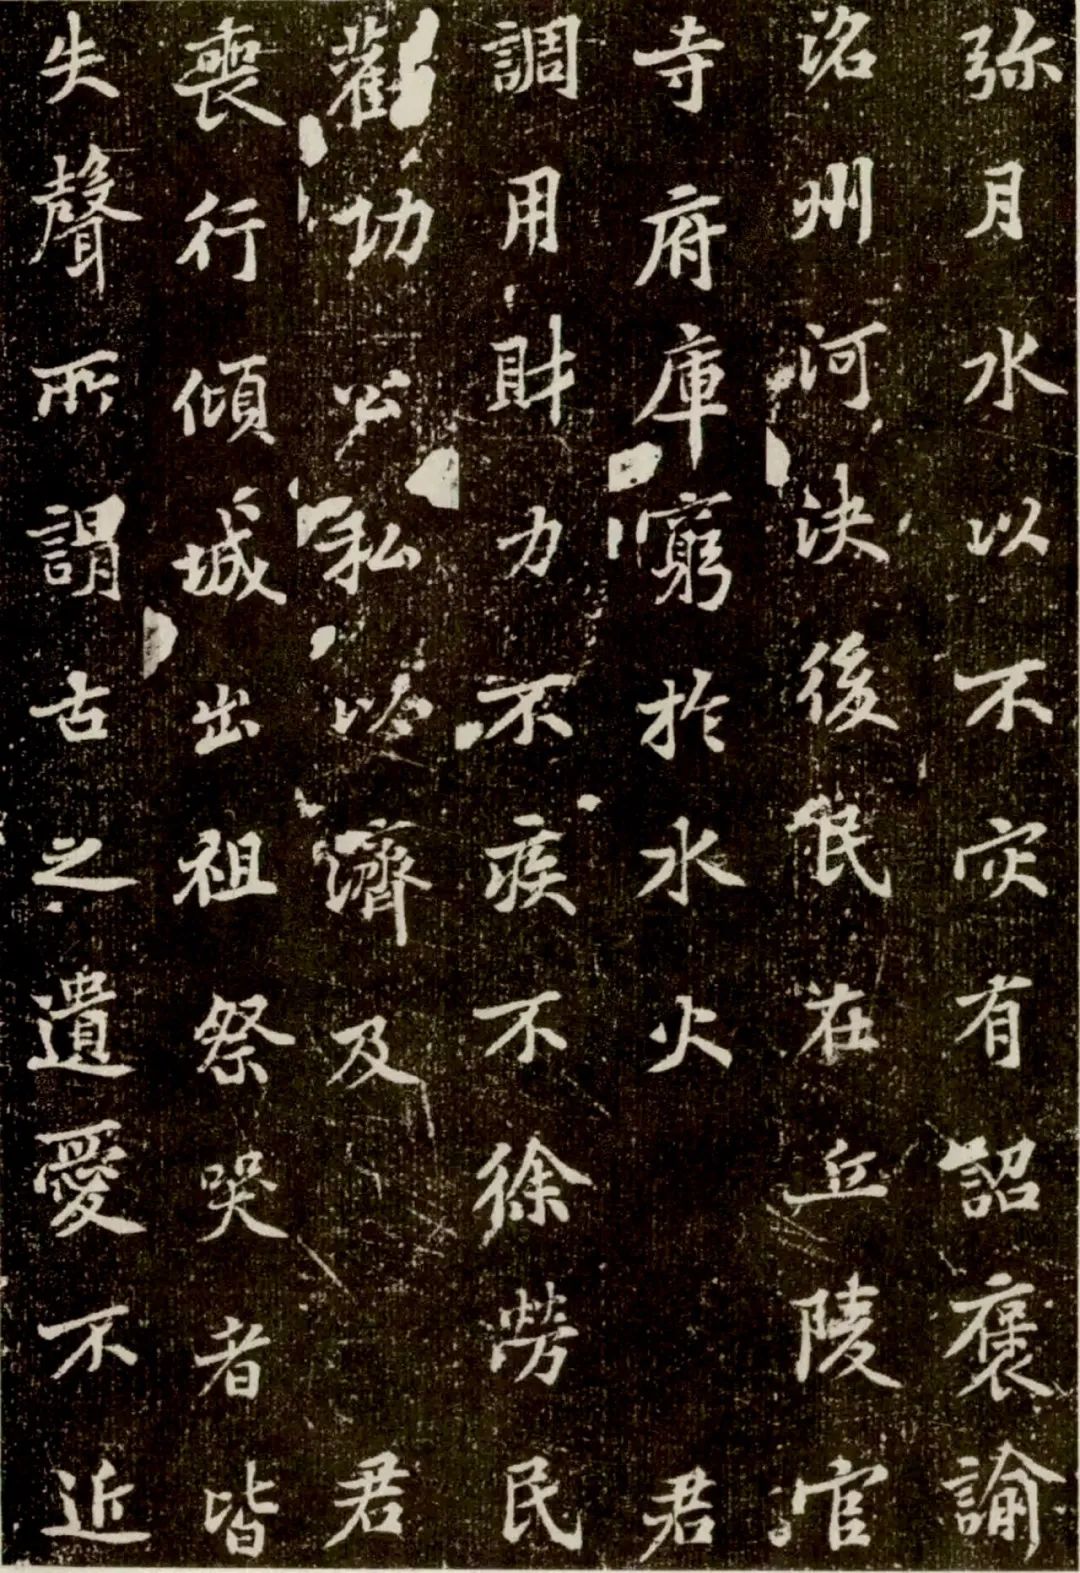 弥月水以不灾有詔褒諭
洺州河決後民在丘陵官
寺府庫窮於水火君
調用財力不疾不徐勞民
勸功公私以濟及君
喪行傾城出祖祭哭者皆
失聲所謂古之遺愛不近